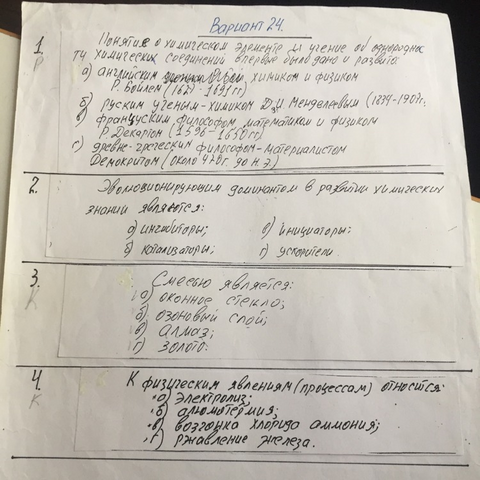 Вариант 24.
1. Понятие о химическом элементе и учение об однороднос
Р ти химических соединений впервые было дано и развито:
а) английским химиком и физиком
Р. Бойлем (1627-1691гг)
б) руским ученым-химиком Д.И Менделеевым (1834-1907г.
в) французским философом, математиком и физиком
Р. Декартом (1596-1650гг)
г) древне-греческим философом-материалистом
Демокритом (около 470г. до н.э.)
2. Эволюционирующим доминантом в развитии химических
знаний являются:
а) ингибиторы; в) инициаторы;
б) катализаторы; г) ускорители.
3. Смесью является:
К а) оконное стекло;
б) озоновый слой;
в) алмаз;
г) золото.
4. К физическим явлениям (процессам) относится:
К а) электролиз;
б) алюмотермия;
в) возгонка хлорида аммония;
г) ржавление железа.